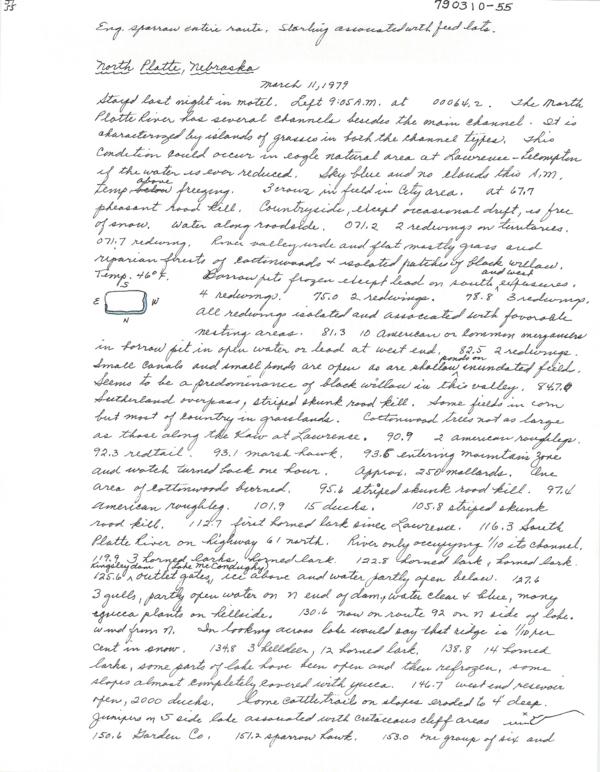 790310-55
Eng. sparrow entire route. Starling associated with feed lots.
North Platte, Nebraska
March 11, 1979
Stayd last night in motel. Left 9:05 A.M. at 00064.2. The North
Platte River has several channels besides the main channel. It is
characterized by islands of grasses in both the channel types. This
condition could occur in eagle natural area at Lawrence-Lecompton
if the water is ever reduced. Sky blue and no clouds this A.M.
temp above below freezing. 3 crows in field in city area. at 67.7
pheasant road kill. Countryside, except occasional drift, is free
of snow. Water along roadside. 071.2 2 redwings on territories.
071.7 redwing. River valley wide and flat mostly grass and
riparian forests of cottonwoods + isolated patches of black willow.
Temp. 46°F. Borrow pits frozen except lead on south and west exposures.
S
E W
N
4 redwings. 75.0 2 redwings. 78.8 3 redwings.
All redwings isolated and associated with favorable
nesting areas. 81.3 10 American or common mergansers
in borrow pit in open water or lead at west end. 82.5 2 redwings.
Small canals and small ponds are open as are shallow ponds on inundated field.
Seems to be a predominance of black willow in this valley. 847.0
Sutherland overpass, striped skunk road kill. Some fields in corn
but most of country in grasslands. Cottonwood trees not as large
as those along the Kaw at Lawrence. 90.9 2 american roughlegs.
92.3 redtail. 93.1 marsh hawk. 93.6 entering mountain zone
and watch turned back one hour. Approx. 250 mallards. One
area of cottonwoods burned. 95.6 striped skunk road kill. 97.4
American roughleg. 101.9 15 ducks. 105.8 striped skunk
road kill. 112.7 first horned lark since Lawrence. 116.3 South
Platte River on highway 61 north. River only occupying 1/10 its channel.
119.9 3 horned larks, horned lark. 122.8 horned lark, horned lark.
Kingsley dam (Lake McConaughy)
125.6 outlet gates, ice above and water partly open below. 127.6
3 gulls, partly open water on N end of dam, water clear & blue, many
yucca plants on hillside. 130.6 now on route 92 on N side of lake.
wind from N. In looking across lake would say that ridge is 1/10 per
cent in snow. 134.8 3 killdeer, 12 horned lark. 138.8 14 horned
larks, some parts of lake have been open and then refrozen, some
slopes almost completely covered with yucca. 146.7 west end resevoir
open, 2000 ducks. Some cattle trails on slopes eroded to 4' deep.
Junipers on S side lake associated with cretaceous cliff areas
150.6 Garden Co. 151.2 sparrow hawk. 153.0 one group of six and